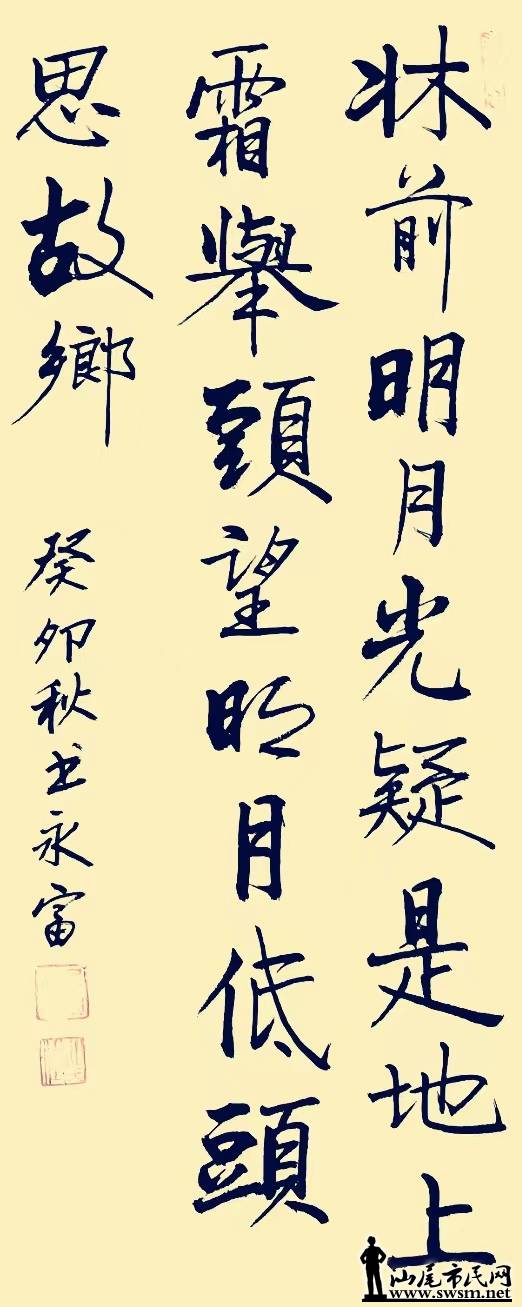 牀前明月光疑是地上
霜舉頭望明月低頭
思故鄉
癸卯秋書永富
汕尾市民网
www.swsm.net